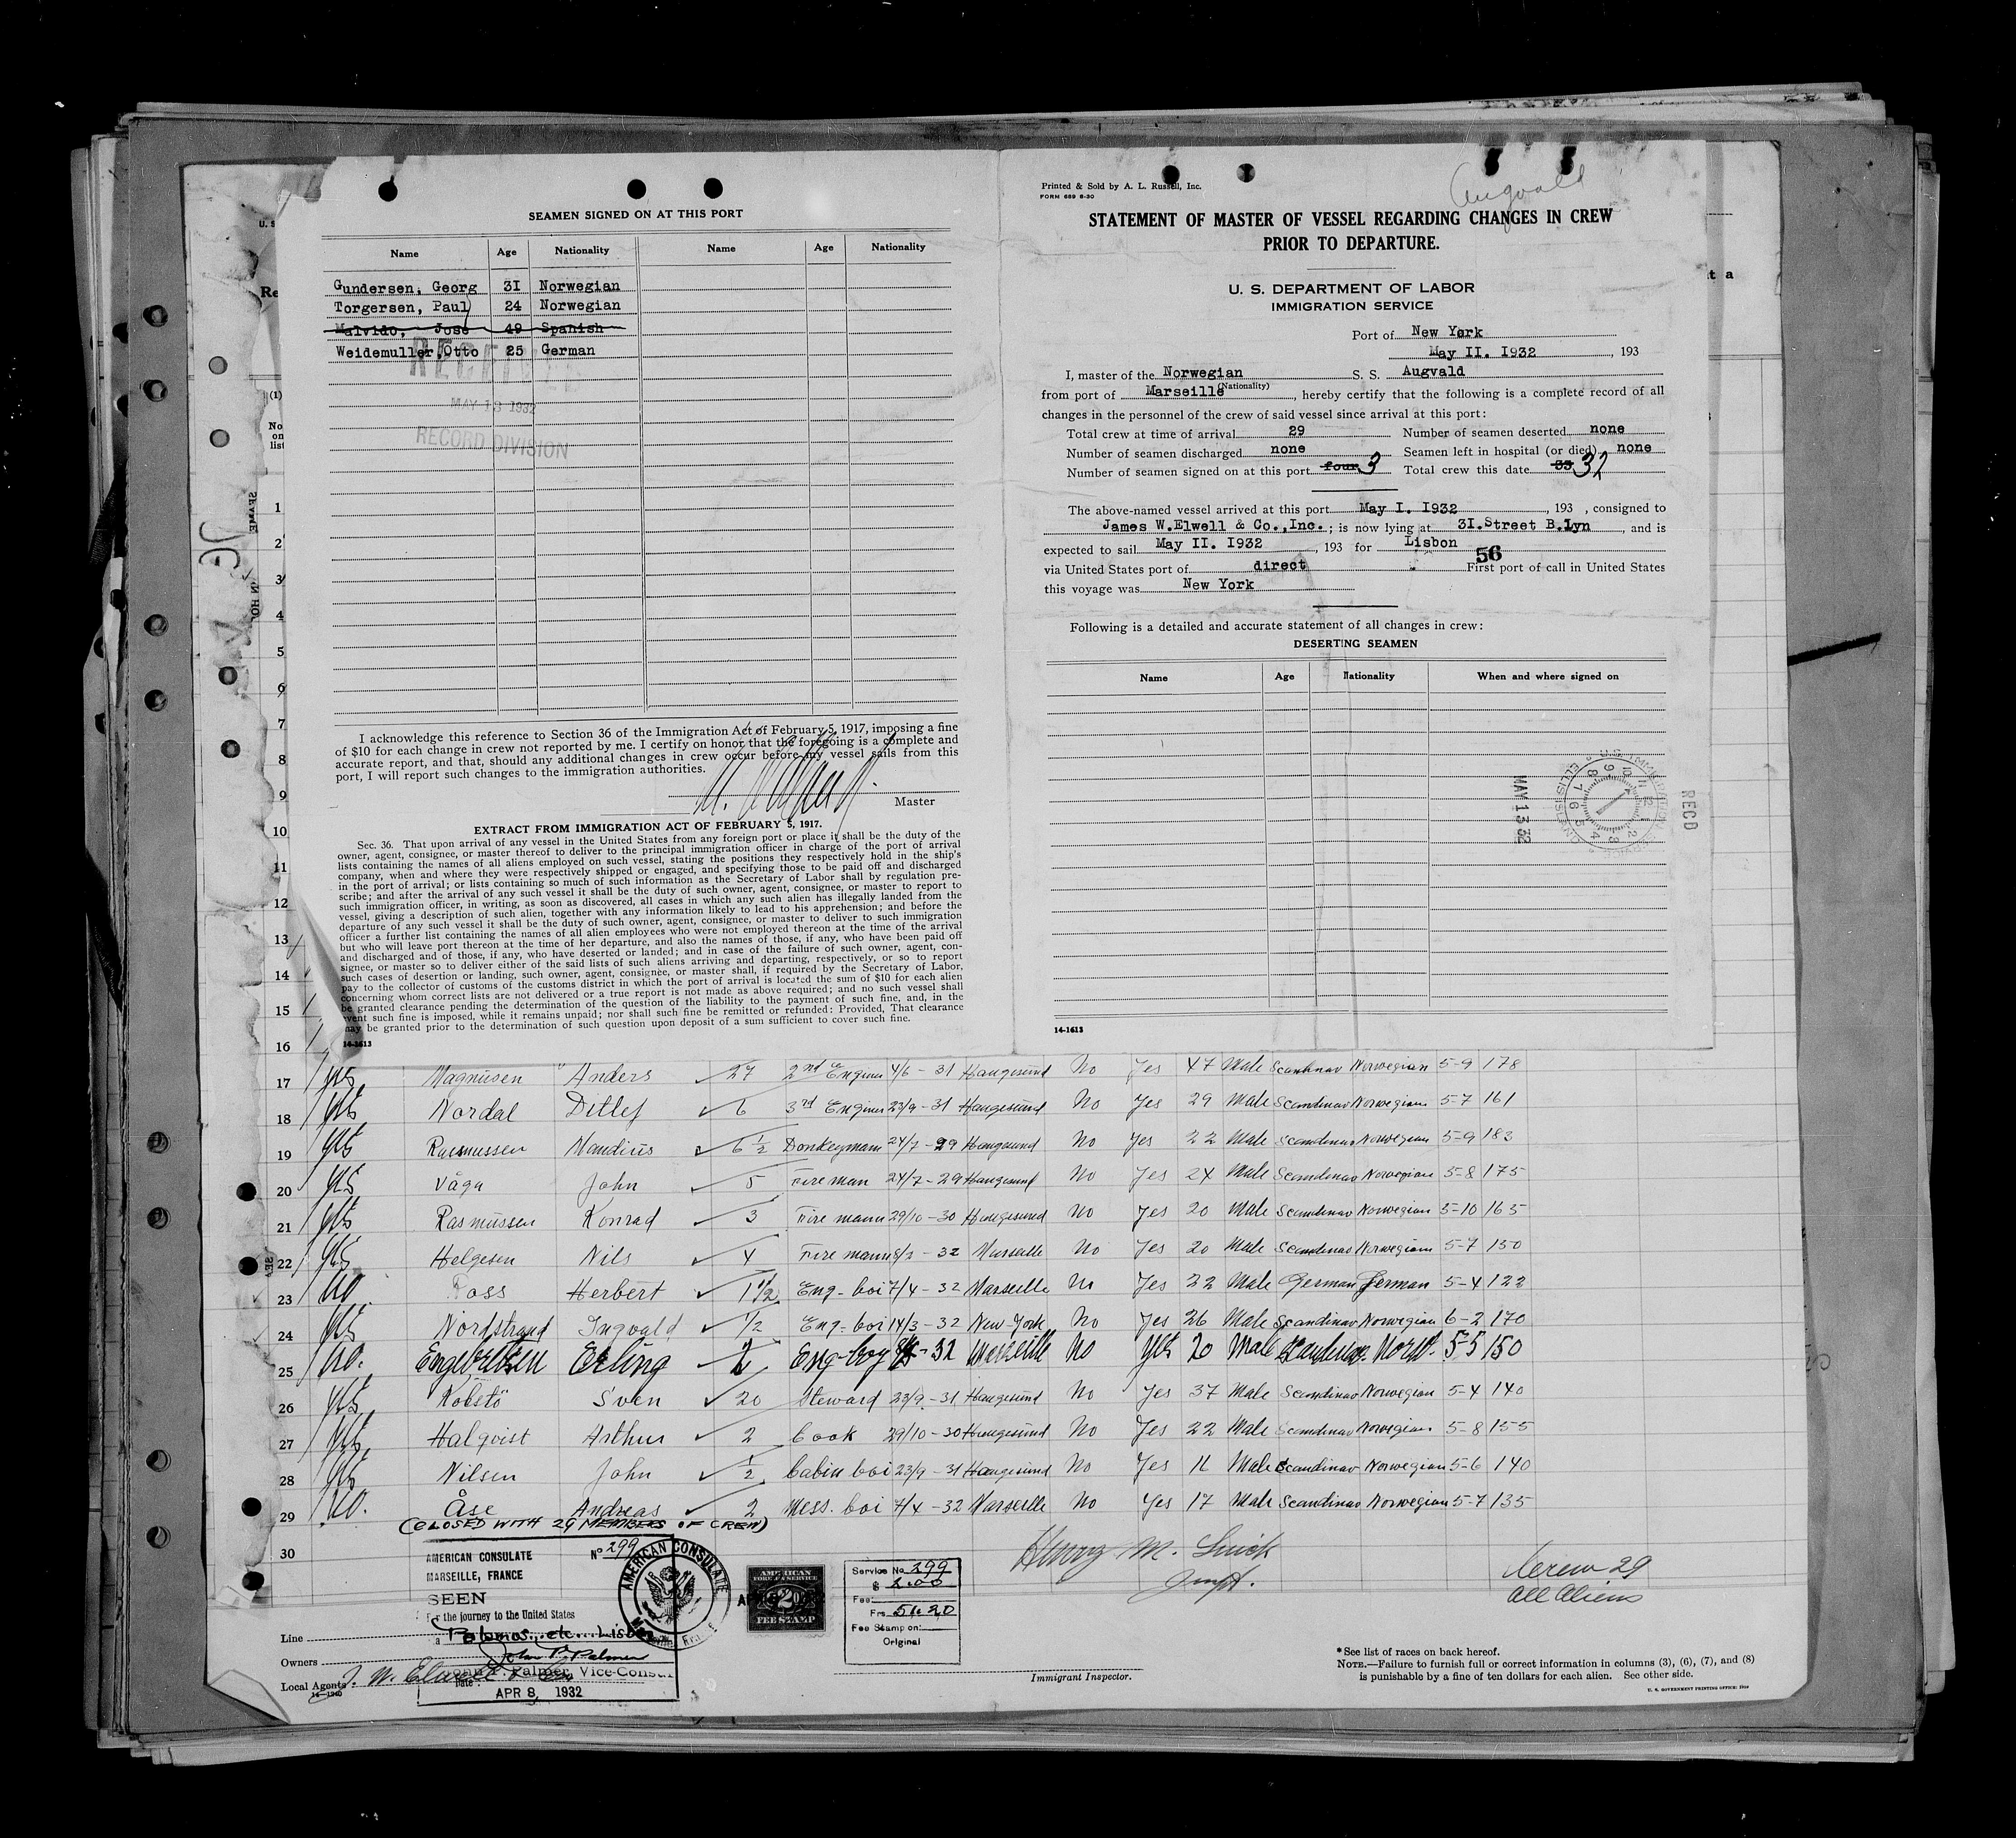 SEAMEN SIGNED ON AT THIS PORT
Name Age Nationality Name Age Nationality
Gundersen, Georg 3I Norwegian
Torgersen, Paul 24 Norwegian
Malvido, Jose 49 Spanish
Weidemuller,Otto 25 German
RECEIVED
MAY 13 1932
RECORD DIVISION
I acknowledge this reference to Section 36 of the Immigration Act of February 5, 1917, imposing a fine
of $10 for each change in crew not reported by me. I certify on honor that the foregoing is a complete and
accurate report, and that, should any additional changes in crew occur before my vessel sails from this
port, I will report such changes to the immigration authorities.
Master
EXTRACT FROM IMMIGRATION ACT OF FEBRUARY 5, 1917.
Sec. 36. That upon arrival of any vessel in the United States from any foreign port or place it shall be the duty of the
owner, agent, consignee, or master thereof to deliver to the principal immigration officer in charge of the port of arrival
lists containing the names of all aliens employed on such vessel, stating the positions they respectively hold in the ship's
company, when and where they were respectively shipped or engaged, and specifying those to be paid off and discharged
in the port of arrival; or lists containing so much of such information as the Secretary of Labor shall by regulation pre-
scribe; and after the arrival of any such vessel it shall be the duty of such owner, agent, consignee, or master to report to
such immigration officer, in writing, as soon as discovered, all cases in which any such alien has illegally landed from the
vessel, giving a description of such alien, together with any information likely to lead to his apprehension; and before the
departure of any such vessel it shall be the duty of such owner, agent, consignee, or master to deliver to such immigration
officer a further list containing the names of all alien employees who were not employed thereon at the time of the arrival
but who will leave port thereon at the time of her departure, and also the names of those, if any, who have been paid off
and discharged and of those, if any, who have deserted or landed; and in case of the failure of such owner, agent, con-
signee, or master so to deliver either of the said lists of such aliens arriving and departing, respectively, or so to report
such cases of desertion or landing, such owner, agent, consignee, or master shall, if required by the Secretary of Labor,
pay to the collector of customs of the customs district in which the port of arrival is located the sum of $10 for each alien
concerning whom correct lists are not delivered or a true report is not made as above required; and no such vessel shall
be granted clearance pending the determination of the question of the liability to the payment of such fine, and, in the
event such fine is imposed, while it remains unpaid; nor shall such fine be remitted or refunded: Provided, That clearance
may be granted prior to the determination of such question upon deposit of a sum sufficient to cover such fine.
14-1613
Augvald
Printed & Sold by A. L. Russell, Inc.
FORM 689 8-30
STATEMENT OF MASTER OF VESSEL REGARDING CHANGES IN CREW
PRIOR TO DEPARTURE.
U. S. DEPARTMENT OF LABOR
IMMIGRATION SERVICE
Port of New York
May II. I932, 193
I, master of the Norwegian S. S. Augvald
(Nationality)
from port of Marseille, hereby certify that the following is a complete record of all
changes in the personnel of the crew of said vessel since arrival at this port:
Total crew at time of arrival 29 Number of seamen deserted none
Number of seamen discharged none Seamen left in hospital (or died) none
Number of seamen signed on at this port four 3 Total crew this date 33 32
The above-named vessel arrived at this port May I. I932, 193 , consigned to
James W.Elwell & Co.,Inc.; is now lying at 3I.Street B.Lyn, and is
expected to sail May II. I932, 193 for Lisbon
56
via United States port of direct First port of call in United States
this voyage was New York
Following is a detailed and accurate statement of all changes in crew:
DESERTING SEAMEN
Name Age Nationality When and where signed on
RECD
MAY 13 32
14-1613
1
2
3
4
5
6
7
8
9
10
11
12
13
14
15
16
17 yes Magnusen Anders 27 2nd Engineer 4/6 - 31 Haugesund No Yes 47 Male Scandinav Norwegian 5-9 178
18 yes Nordal Ditlef 6 3rd Engineer 23/9 - 31 Haugesund No Yes 29 Male Scandinav Norwegian 5-7 161
19 yes Rasmussen Nandius 6 1/2 Donkeymann 24/7 - 29 Haugesund No Yes 22 Male Scandinav Norwegian 5-9 183
20 yes Våga John 5 Fireman 24/7 - 29 Haugesund No Yes 24 Male Scandinav Norwegian 5-8 175
21 yes Rasmussen Konrad 3 Fire mann 29/10 - 30 Haugesund No Yes 20 Male Scandinav Norwegian 5-10 165
22 yes Helgesen Nils 4 Fire mann 8/2 - 32 Marseille No Yes 20 Male Scandinav Norwegian 5-7 150
23 no Poss Herbert 1 1/2 Eng- boi 7/4 - 32 Marseille No Yes 22 Male German German 5-4 122
24 yes Nordstrand Ingvald 1/2 Eng- boi 14/3 - 32 New York No Yes 26 Male Scandinav Norwegian 6-2 170
25 no. Engebretsen Erling 2 Eng-boy - 32 Marseille No yes 20 Male Scandinav. Norw. 5-5 150
26 yes Kolstö Sven 20 Steward 23/9 - 31 Haugesund No Yes 37 Male Scandinav Norwegian 5-4 140
27 yes Halqvist Arthur 2 Cook 29/10 - 30 Haugesund No Yes 22 Male Scandinav Norwegian 5-8 155
28 yes Nilsen John 1/2 Cabin boi 23/9 - 31 Haugesund No Yes 16 Male Scandinav Norwegian 5-6 140
29 no. Åse Andreas 2 Mess. boi 7/4 - 32 Marseille No Yes 17 Male Scandinav Norwegian 5-7 135
(CLOSED WITH 29 MEMBERS OF CREW)
30
AMERICAN CONSULATE
MARSEILLE, FRANCE
No 299
SEEN
For the journey to the United States
John P. Palmer
John P. Palmer, Vice-Consul
Date:
APR 8, 1932
AMERICAN CONSULATE
AMERICAN
FOREIGN SERVICE
$2.00
FEE STAMP
Service No 299
$ 2.00
Fee:
Frs 51.20
Fee Stamp on:
Original
Crew 29
All Aliens
Line
Owners
Local Agents J. W. Elwell & Co
14-1940
Immigrant Inspector.
*See list of races on back hereof.
NOTE.—Failure to furnish full or correct information in columns (3), (6), (7), and (8)
is punishable by a fine of ten dollars for each alien. See other side.
U. S. GOVERNMENT PRINTING OFFICE